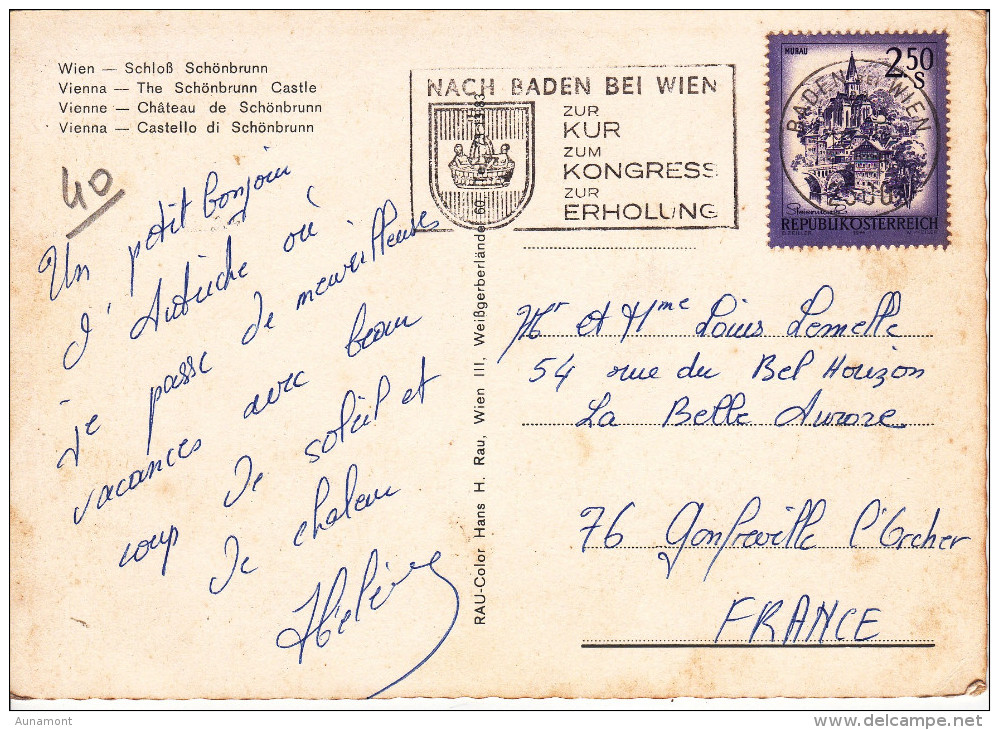 Wien — Schloß Schönbrunn
Vienna — The Schönbrunn Castle
Vienne — Château de Schönbrunn
Vienna — Castello di Schönbrunn
40
Un petit bonjour
d'Autriche où
je passe de merveilleuses
vacances avec beau
coup de soleil et
de chaleur
Hélène
RAU-Color Hans H. Rau, Wien III, Weißgerberlände 60
NACH BADEN BEI WIEN
ZUR
KUR
ZUM
KONGRESS
ZUR
ERHOLUNG
MURAU
2.50
S
BADEN BEI WIEN
REPUBLIK ÖSTERREICH
Mr et Mme Louis Lemelle
54 rue du Bel Horizon
La Belle Aurore
76 Gonfreville l'Orcher
FRANCE
Aunamont
delcampe.net